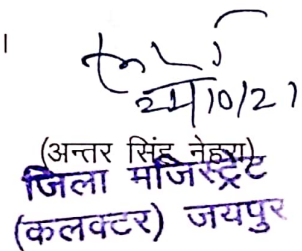 24/10/21
(अन्तर सिंह नेहरा)
जिला मजिस्ट्रेट
(कलक्टर) जयपुर